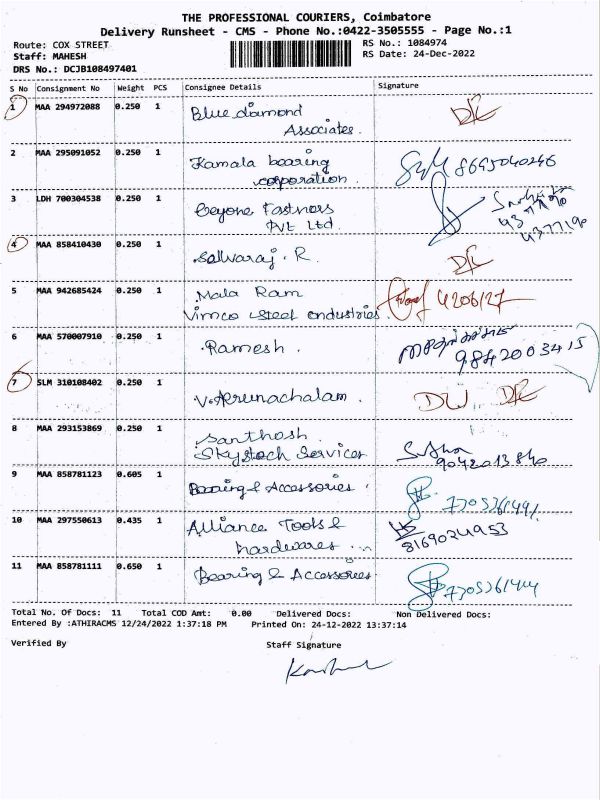 THE PROFESSIONAL COURIERS, Coimbatore
Delivery Runsheet - CMS - Phone No.:0422-3505555 - Page No.:1
Route: COX STREET
RS No.: 1084974
Staff: MAHESH
RS Date: 24-Dec-2022
DRS No.: DCJB108497401
S No Consignment No Weight PCS Consignee Details Signature
1 MAA 294972088 0.250 1 Blue diamond
Associates.
2 MAA 295091052 0.250 1 Kamala bearing 8695040246
corporation
3 LDH 700304538 0.250 1 Ceyone Fastnors
Pvt Ltd.
4 MAA 858410430 0.250 1 Salwaraj. R
5 MAA 942685424 0.250 1 Mala Ram
Vimco steel industries
6 MAA 570007910 0.250 1 Ramesh.
9842003415
7 SLM 310108402 0.250 1 V. Arunachalam
8 MAA 293153869 0.250 1 Santhosh.
Skystech Services
9042013840
9 MAA 858781123 0.605 1 Bearing & Accessories
10 MAA 297550613 0.435 1 Alliance Tools &
hardwares
8169024953
11 MAA 858781111 0.650 1 Bearing & Accessories
Total No. Of Docs: 11 Total COD Amt: 0.00 Delivered Docs: Non Delivered Docs:
Entered By :ATHIRACMS 12/24/2022 1:37:18 PM Printed On: 24-12-2022 13:37:14
Verified By Staff Signature